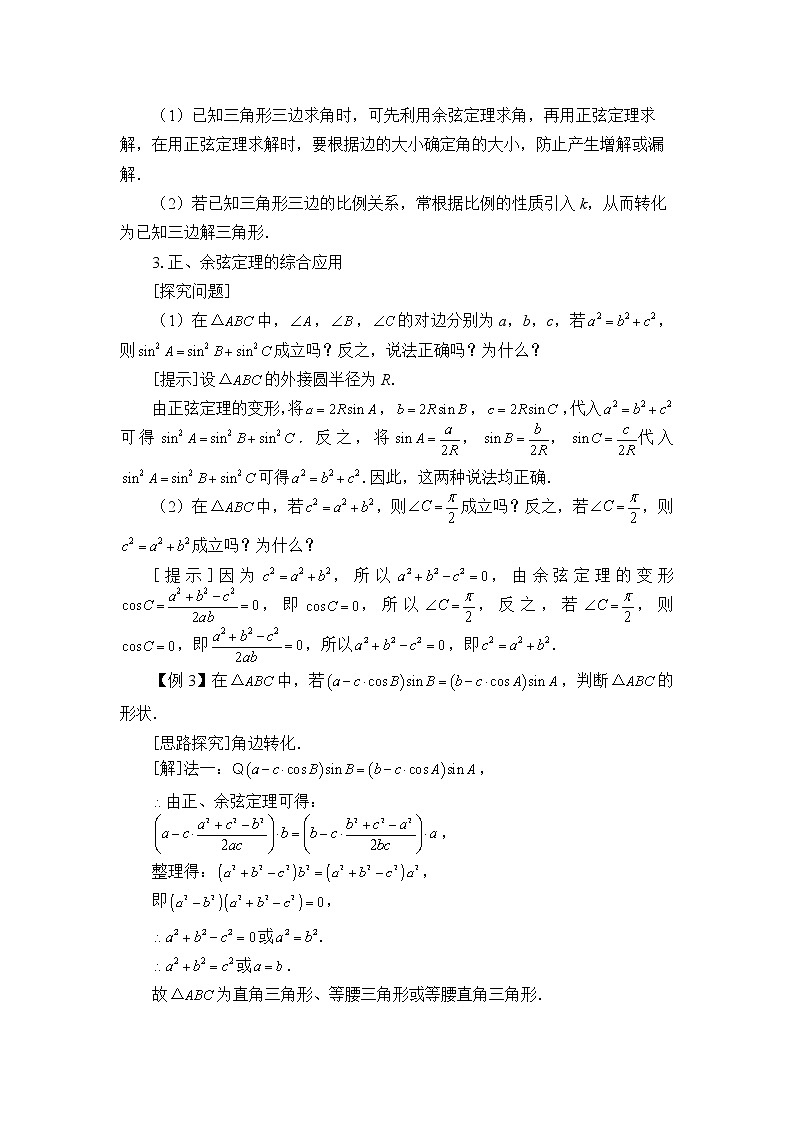 （1）已知三角形三边求角时，可先利用余弦定理求角，再用正弦定理求
解，在用正弦定理求解时，要根据边的大小确定角的大小，防止产生增解或漏
解.
（2）若已知三角形三边的比例关系，常根据比例的性质引入 k，从而转化
为已知三边解三角形.
3. 正、余弦定理的综合应用
[探究问题]
（1）在△ABC中，∠A，∠B，∠C的对边分别为 a，b，c，若a² = b² + c²，
则sin² A = sin² B + sin² C成立吗？反之，说法正确吗？为什么？
[提示]设△ABC的外接圆半径为 R.
由正弦定理的变形,将a = 2Rsin A，b = 2Rsin B，c = 2Rsin C,代入a² = b² + c²
可得 sin² A = sin² B + sin² C. 反之，将 sin A = a/2R，sin B = b/2R，sin C = c/2R代入
sin² A = sin² B + sin² C可得a² = b² + c².因此，这两种说法均正确.
（2）在△ABC中，若c² = a² + b²,则∠C = π/2成立吗？反之，若∠C = π/2,则
c² = a² + b²成立吗？为什么？
[提示]因为 c² = a² + b²，所以 a² + b² − c² = 0，由余弦定理的变形
cosC = (a² + b² − c²)/2ab = 0，即 cosC = 0，所以 ∠C = π/2，反之，若 ∠C = π/2，则
cosC = 0,即(a² + b² − c²)/2ab = 0,所以a² + b² − c² = 0,即c² = a² + b².
【例 3】在△ABC中，若(a − c·cosB)sin B = (b − c·cos A)sin A，判断△ABC的
形状.
[思路探究]角边转化.
[解]法一：Q(a − c·cosB)sin B = (b − c·cosA)sin A，
∴由正、余弦定理可得：
(a − c·(a² + c² − b²)/2ac)·b = (b − c·(b² + c² − a²)/2bc)·a，
整理得：(a² + b² − c²)b² = (a² + b² − c²)a²，
即(a² − b²)(a² + b² − c²) = 0，
∴a² + b² − c² = 0或a² = b².
∴a² + b² = c²或a = b.
故△ABC为直角三角形、等腰三角形或等腰直角三角形.